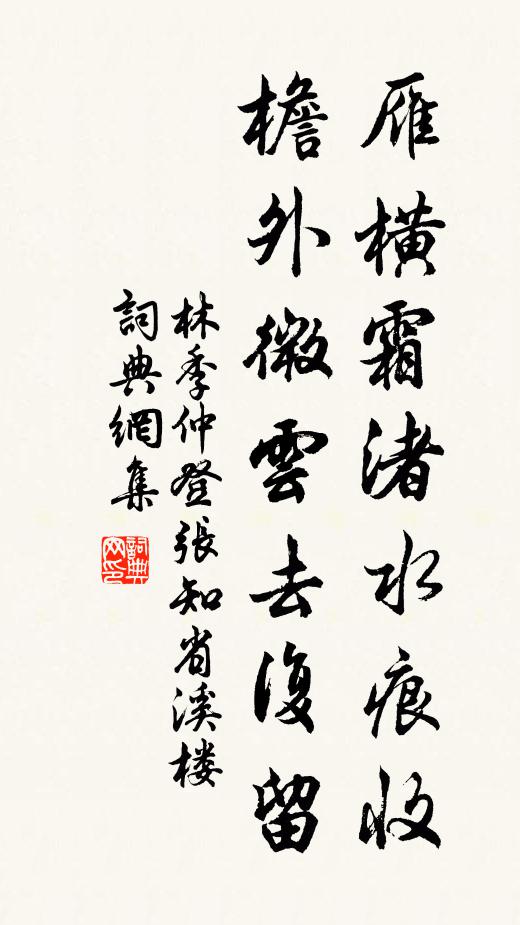 雁橫霜渚水痕收
檐外微雲去復留
林季仲登張知省溪楼
詞典網集
詞典网印